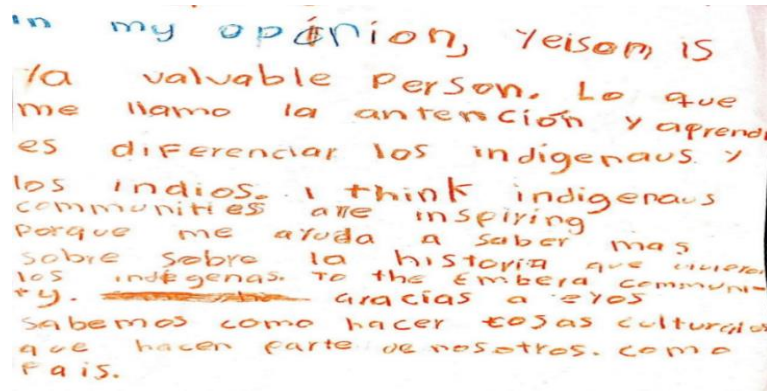 In my opinion, Yeison is
/a valuable person. Lo que
me llamo la antención y aprendi
es diferenciar los indigenaus y
los indios. I think indigenaus
communities are inspiring
porque me ayuda a saber mas
sobre sobre la historia que vivieron
los indigenas. To the Embera communi-
ty. Gracias a eyos
sabemos como hacer cosas culturales
que hacen parte de nosotros. como
Pais.